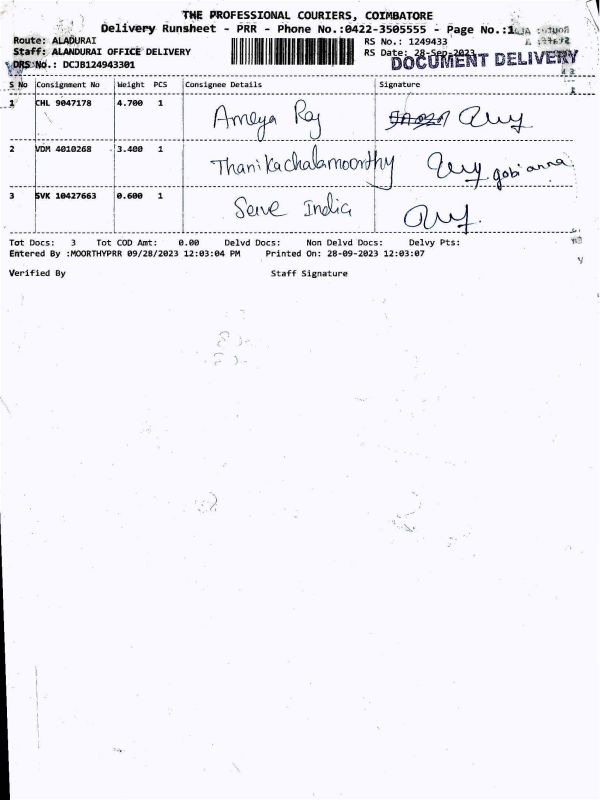 THE PROFESSIONAL COURIERS, COIMBATORE
Delivery Runsheet - PRR - Phone No.:0422-3505555 - Page No.:1
Route: ALADURAI
RS No.: 1249433
Staff: ALANDURAI OFFICE DELIVERY
RS Date: 28-Sep-2023
DOCUMENT DELIVERY
DRS No.: DCJB124943301
S No Consignment No Weight PCS Consignee Details Signature
1 CHL 9047178 4.700 1 Ameya Raj
2 VDM 4010268 3.400 1 Thanikachalamoorthy gobi anna
3 SVK 10427663 0.600 1 Serve India
Tot Docs: 3 Tot COD Amt: 0.00 Delvd Docs: Non Delvd Docs: Delvy Pts:
Entered By :MOORTHYPRR 09/28/2023 12:03:04 PM Printed On: 28-09-2023 12:03:07
Verified By Staff Signature